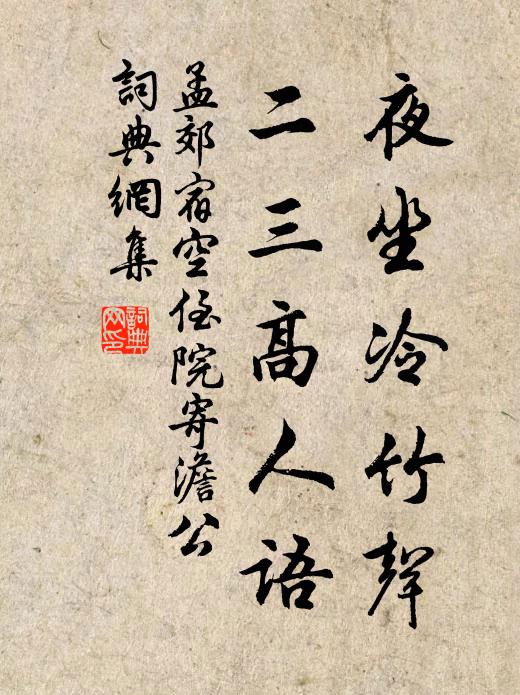 夜坐冷竹聲
二三高人語
孟郊宿空侄院寄澹公
詞典網集
詞典網印